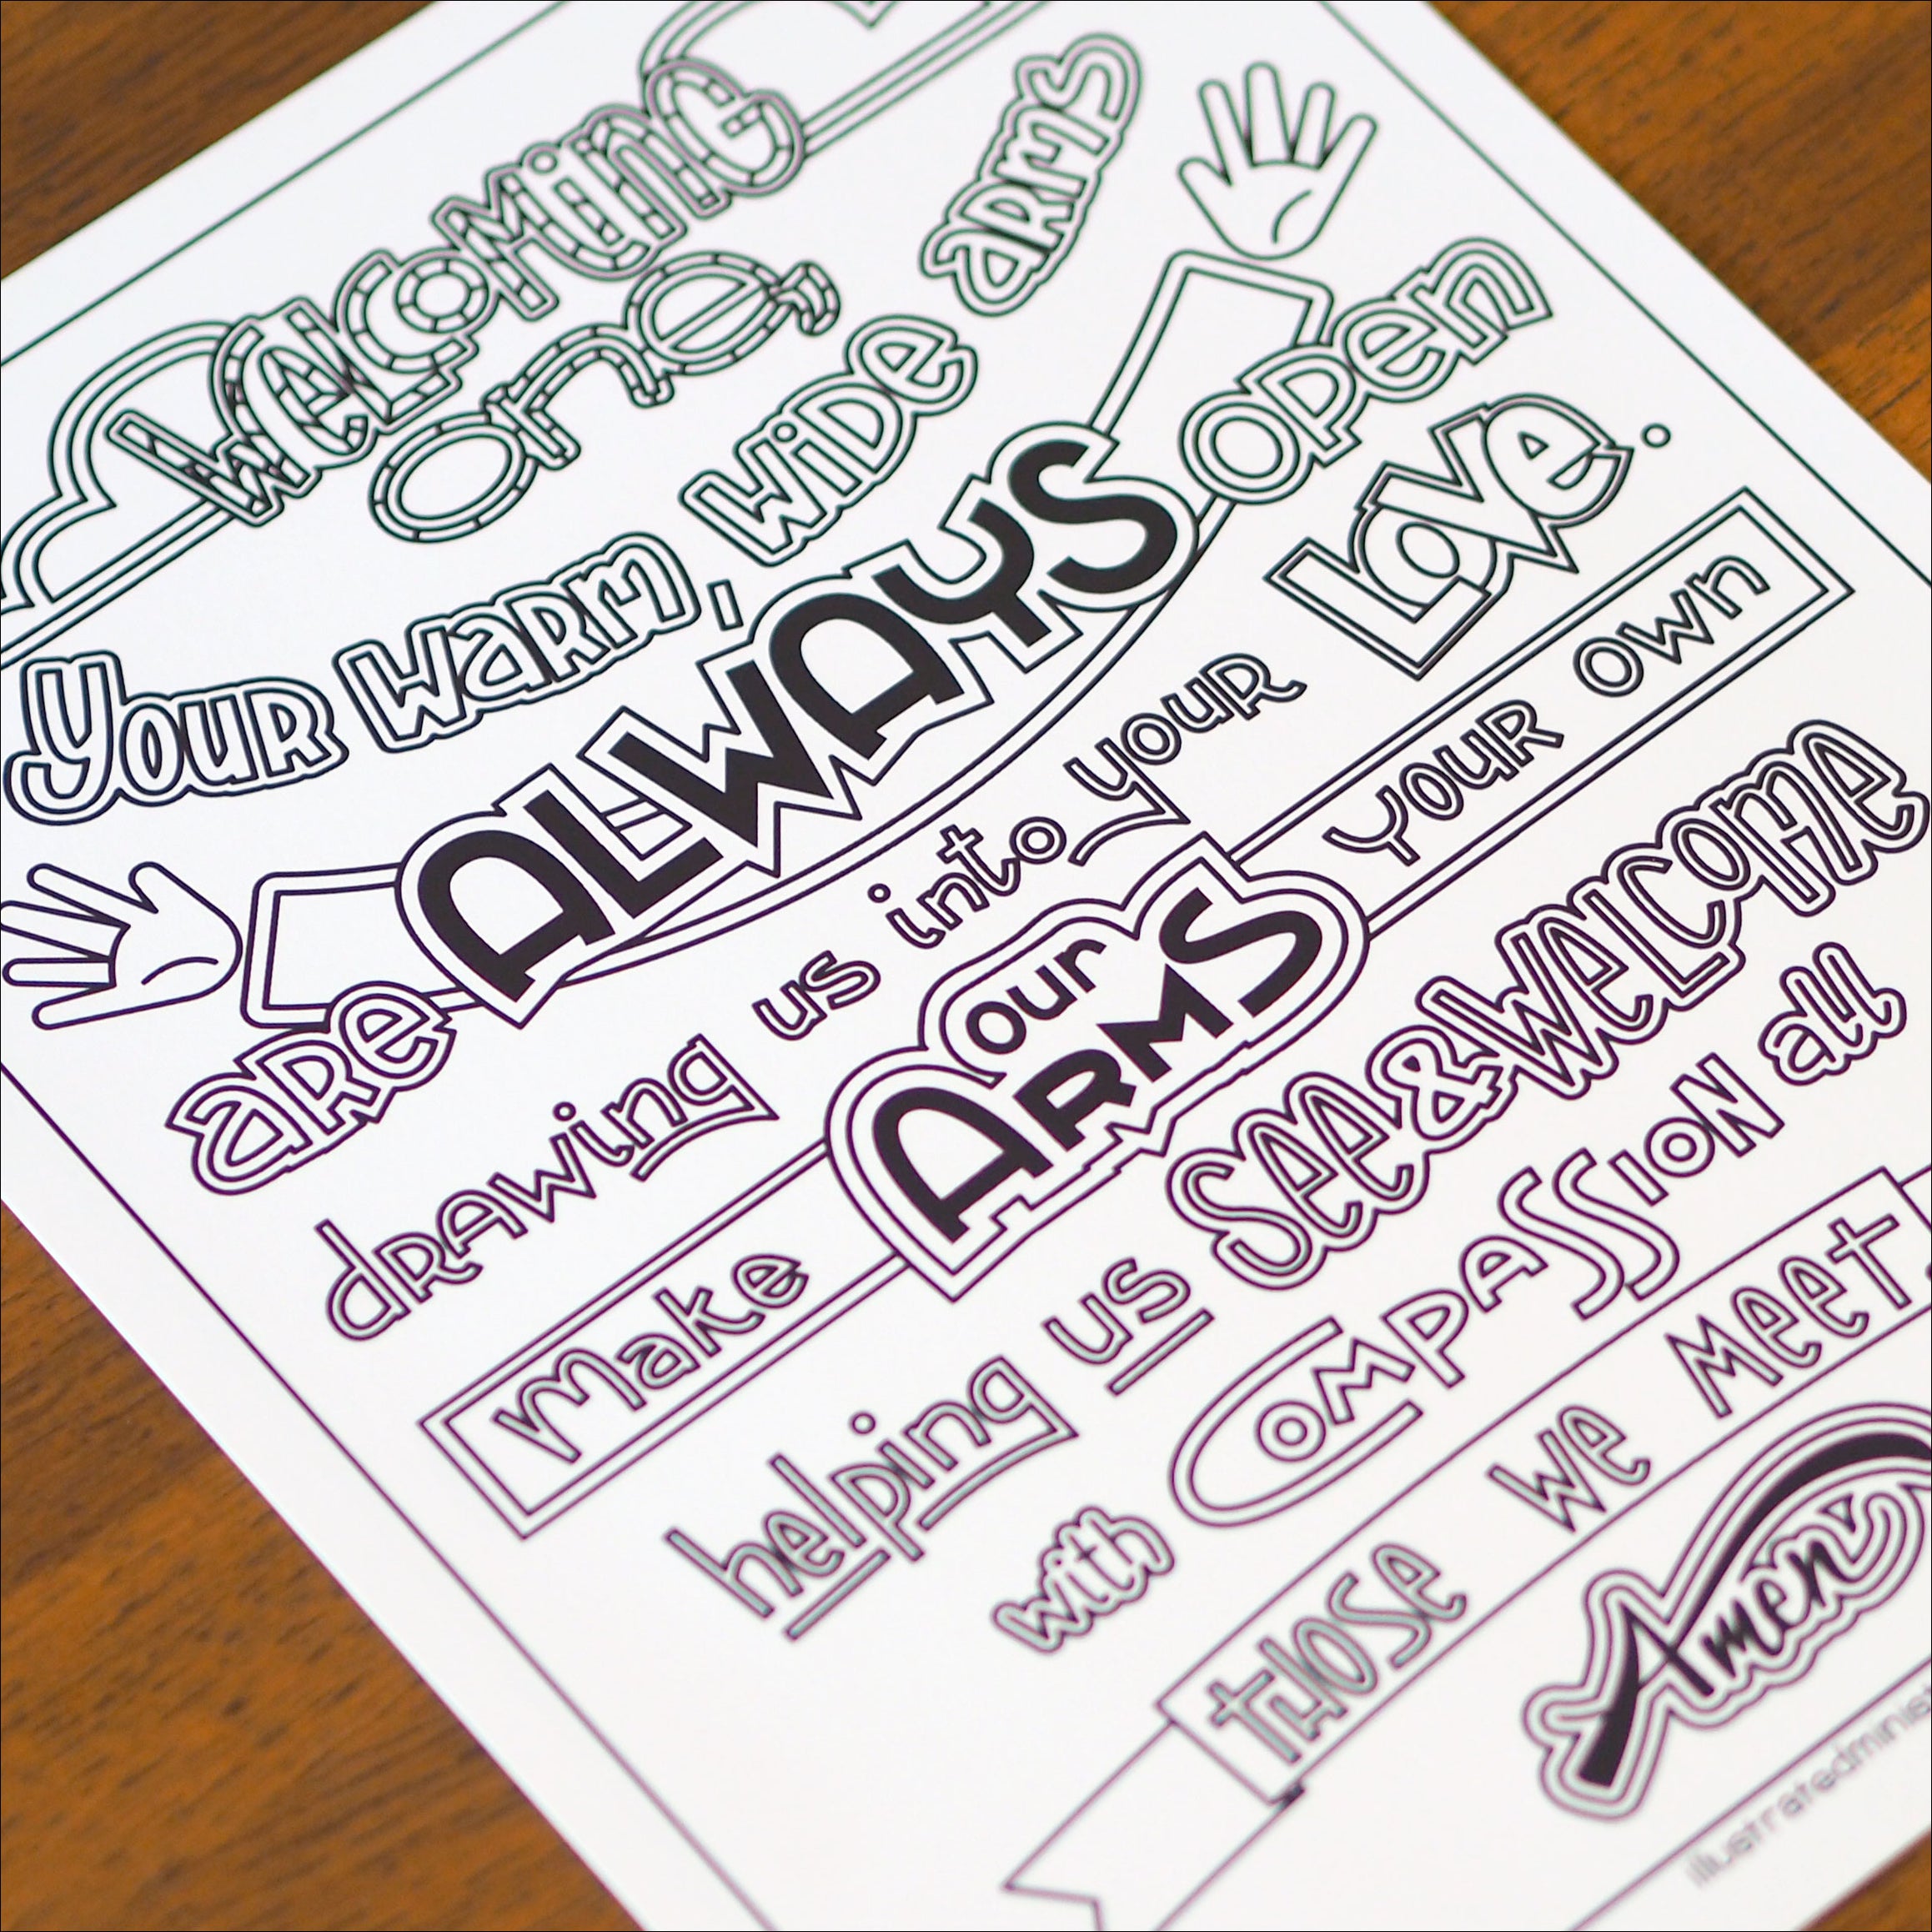 WELCOMING
one,
Your warm, wide arms
are ALWAYS open
drawing us into your Love.
Make our ARMS your own
helping us See & Welcome
with COMPASSION all
those we meet.
Amen